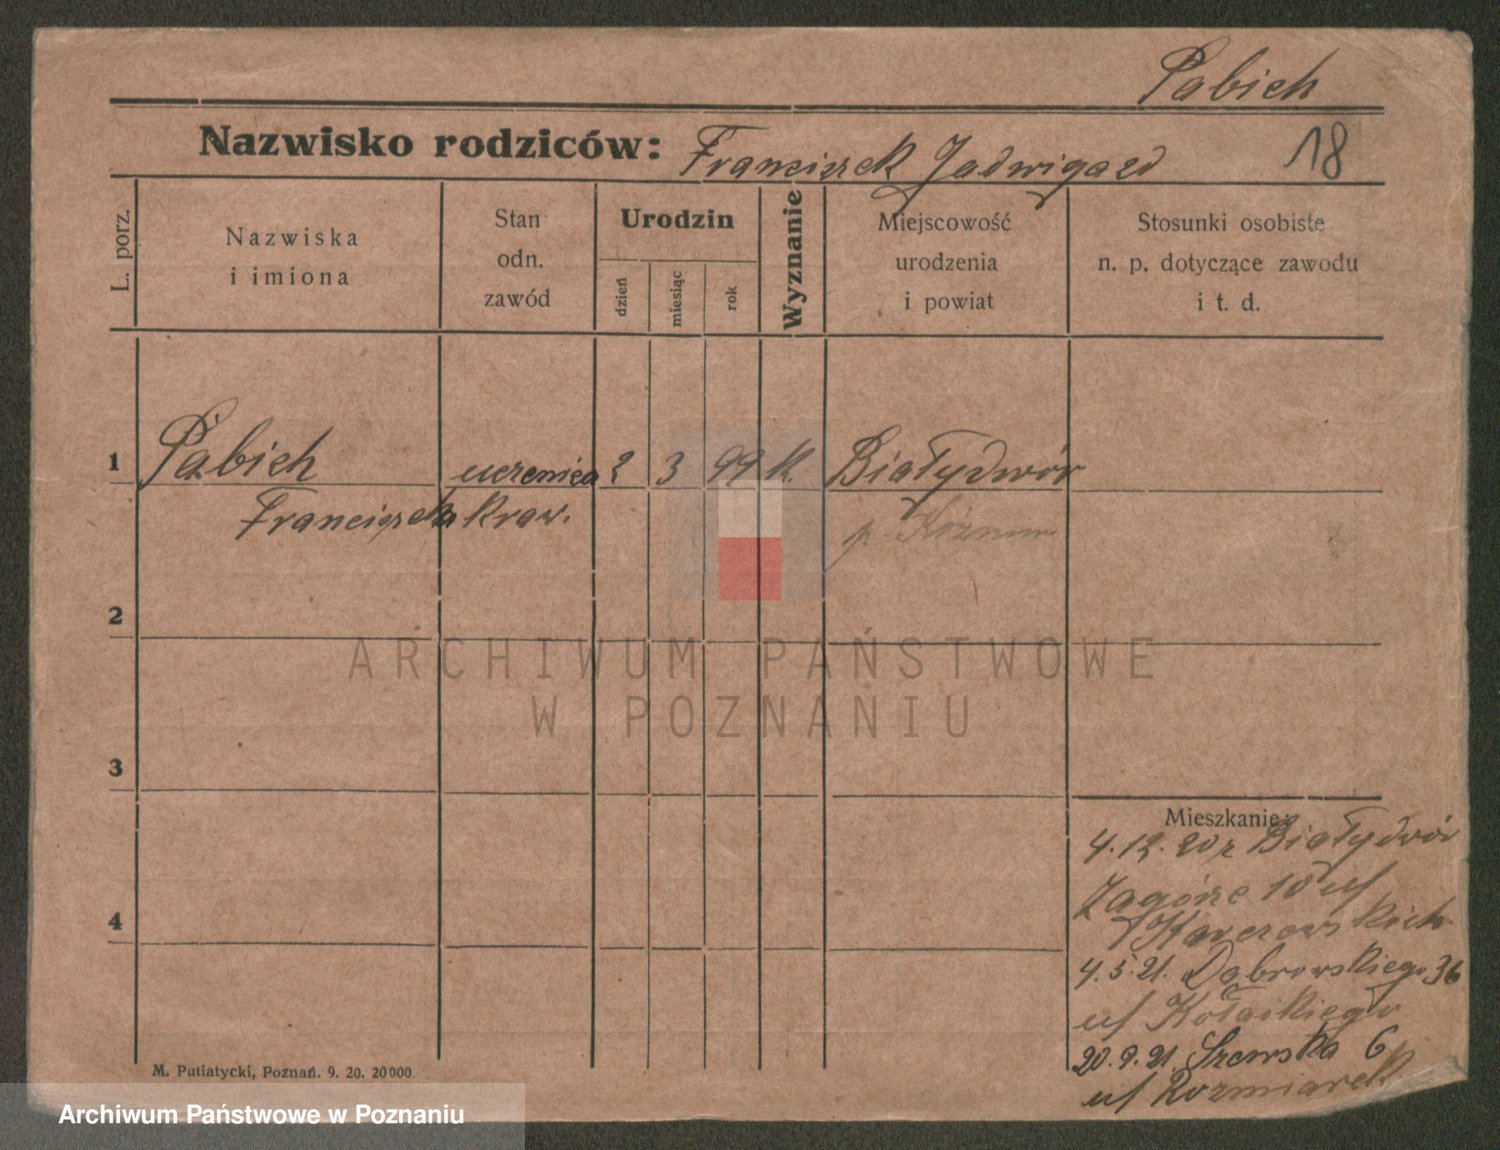 Pabich
Nazwisko rodziców: Franciszek Jadwiga zd
18
L. porz.
Nazwiska
i imiona
Stan
odn.
zawód
Urodzin
dzień
miesiąc
rok
Wyznanie
Miejscowość
urodzenia
i powiat
Stosunki osobiste
n. p. dotyczące zawodu
i t. d.
1 Pabich uczenica 2 3 99 k. Białydwór
Franciszka kraw.
p.
2
3
4
ARCHIWUM PAŃSTWOWE
W POZNANIU
Mieszkanie:
4.12.20 z Białydwór
Zagórze 10 u/
4.5.21. Dąbrowskiego 36
u/
20.9.21. Szewska 6
u/ Rozmiarek
M. Putiatycki, Poznań. 9. 20. 20000.
Archiwum Państwowe w Poznaniu